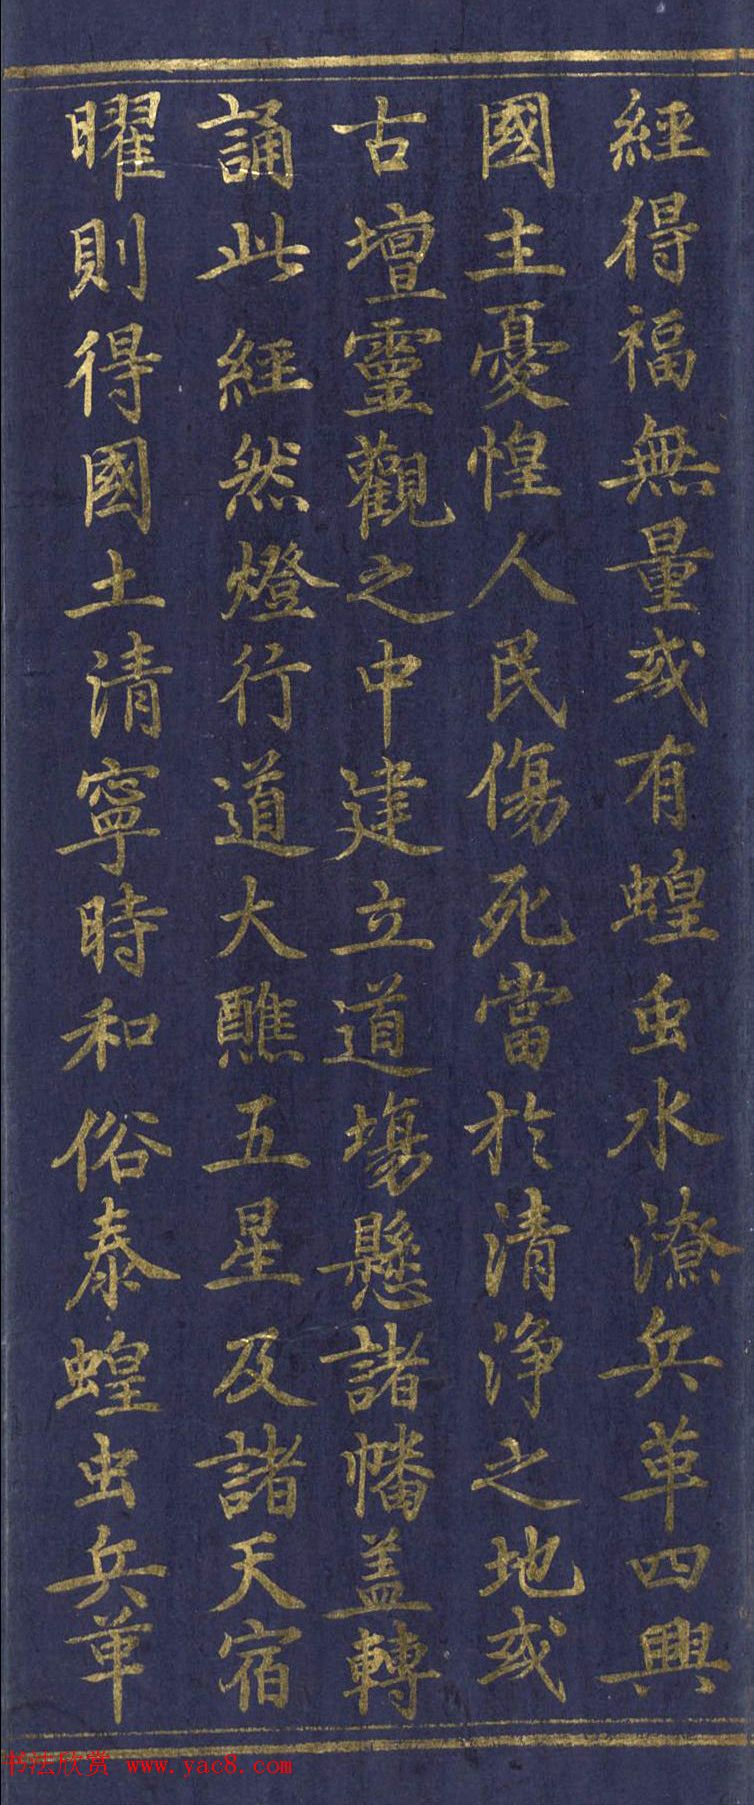 經得福無量或有蝗虫水潦兵革四興
國主憂惶人民傷死當於清淨之地或
古壇靈觀之中建立道塲懸諸幡盖轉
誦此經然燈行道大醮五星及諸天宿
曜則得國土清寧時和俗泰蝗虫兵革
书法欣赏 www.yac8.com